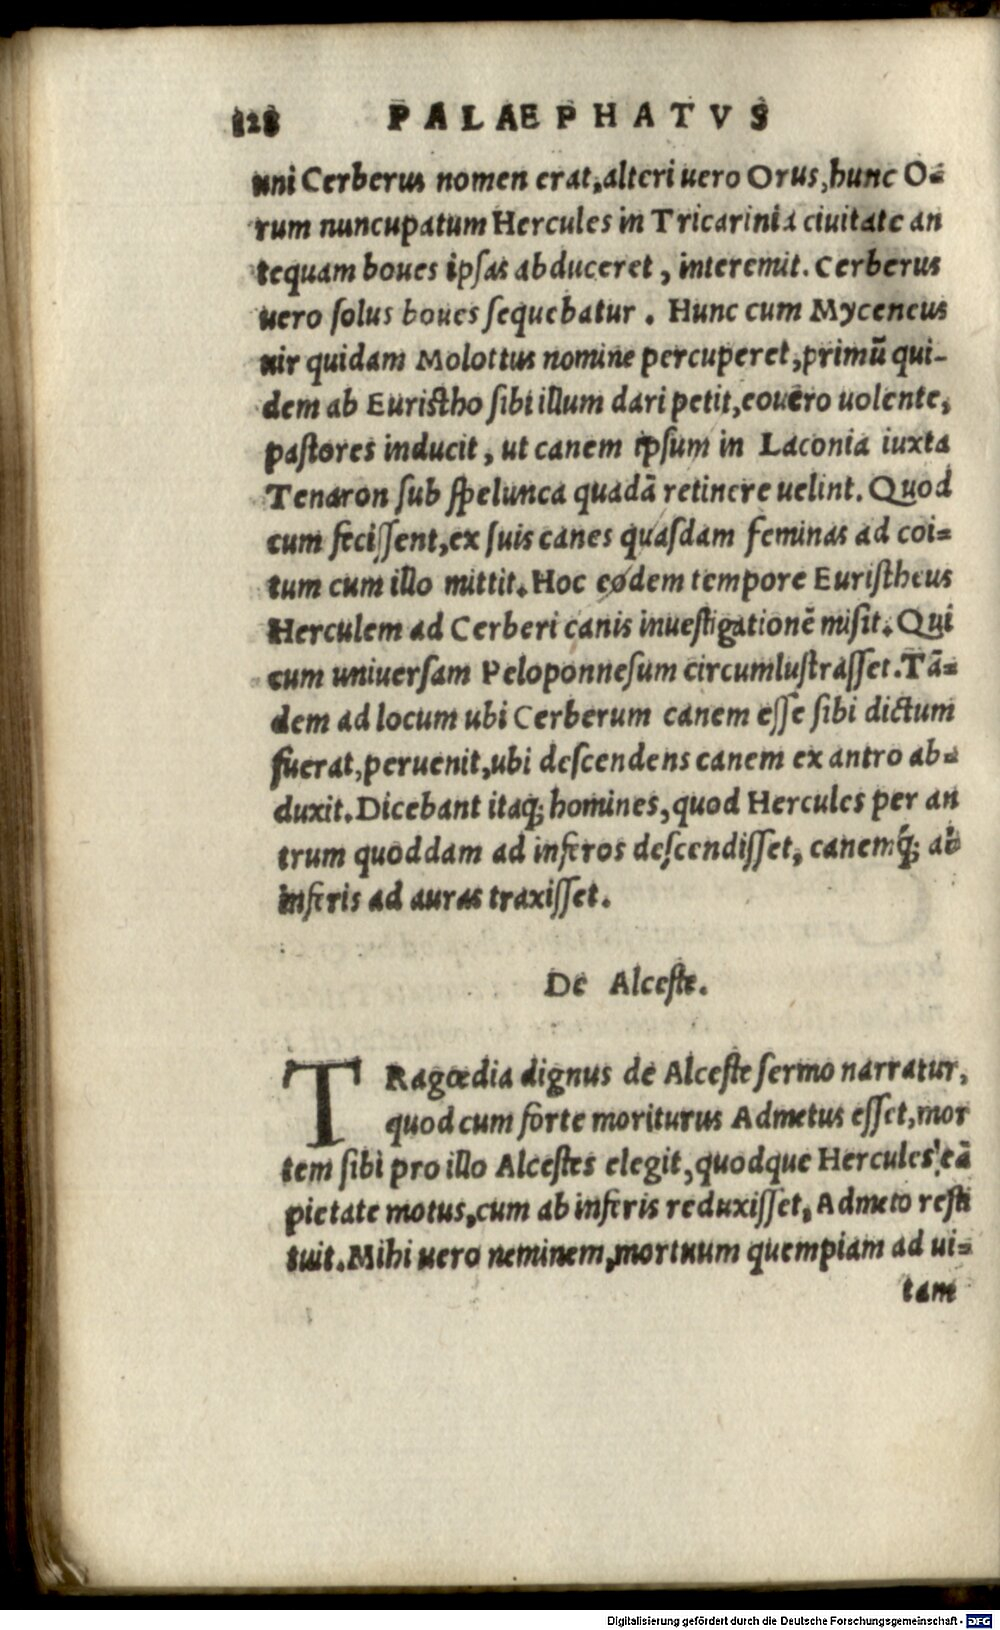 128 PALAEPHATVS
uni Cerberus nomen erat, alteri uero Orus, hunc O-
rum nuncupatum Hercules in Tricarinia ciuitate an
tequam boues ipsas abduceret, interemit. Cerberus
uero solus boues sequebatur. Hunc cum Myceneus
uir quidam Molottus nomine percuperet, primũ qui-
dem ab Euristho sibi illum dari petit, eo uero uolente,
pastores inducit, ut canem ipsum in Laconia iuxta
Tenaron sub spelunca quadã retinere uelint. Quod
cum fecissent, ex suis canes quasdam feminas ad coi-
tum cum illo mittit. Hoc eodem tempore Euristheus
Herculem ad Cerberi canis inuestigationẽ misit. Qui
cum uniuersam Peloponnesum circumlustrasset. Tã-
dem ad locum ubi Cerberum canem esse sibi dictum
fuerat, peruenit, ubi descendens canem ex antro ab-
duxit. Dicebant itaq; homines, quod Hercules per an
trum quoddam ad inferos descendisset, canemq́; ab
inferis ad auras traxisset.
De Alceste.
TRagœdia dignus de Alceste sermo narratur,
quod cum forte moriturus Admetus esset, mor
tem sibi pro illo Alcestes elegit, quodque Hercules eã
pietate motus, cum ab inferis reduxisset, Admeto resti
tuit. Mihi uero neminem, mortuum quempiam ad ui-
tam
Digitalisierung gefördert durch die Deutsche Forschungsgemeinschaft - DFG